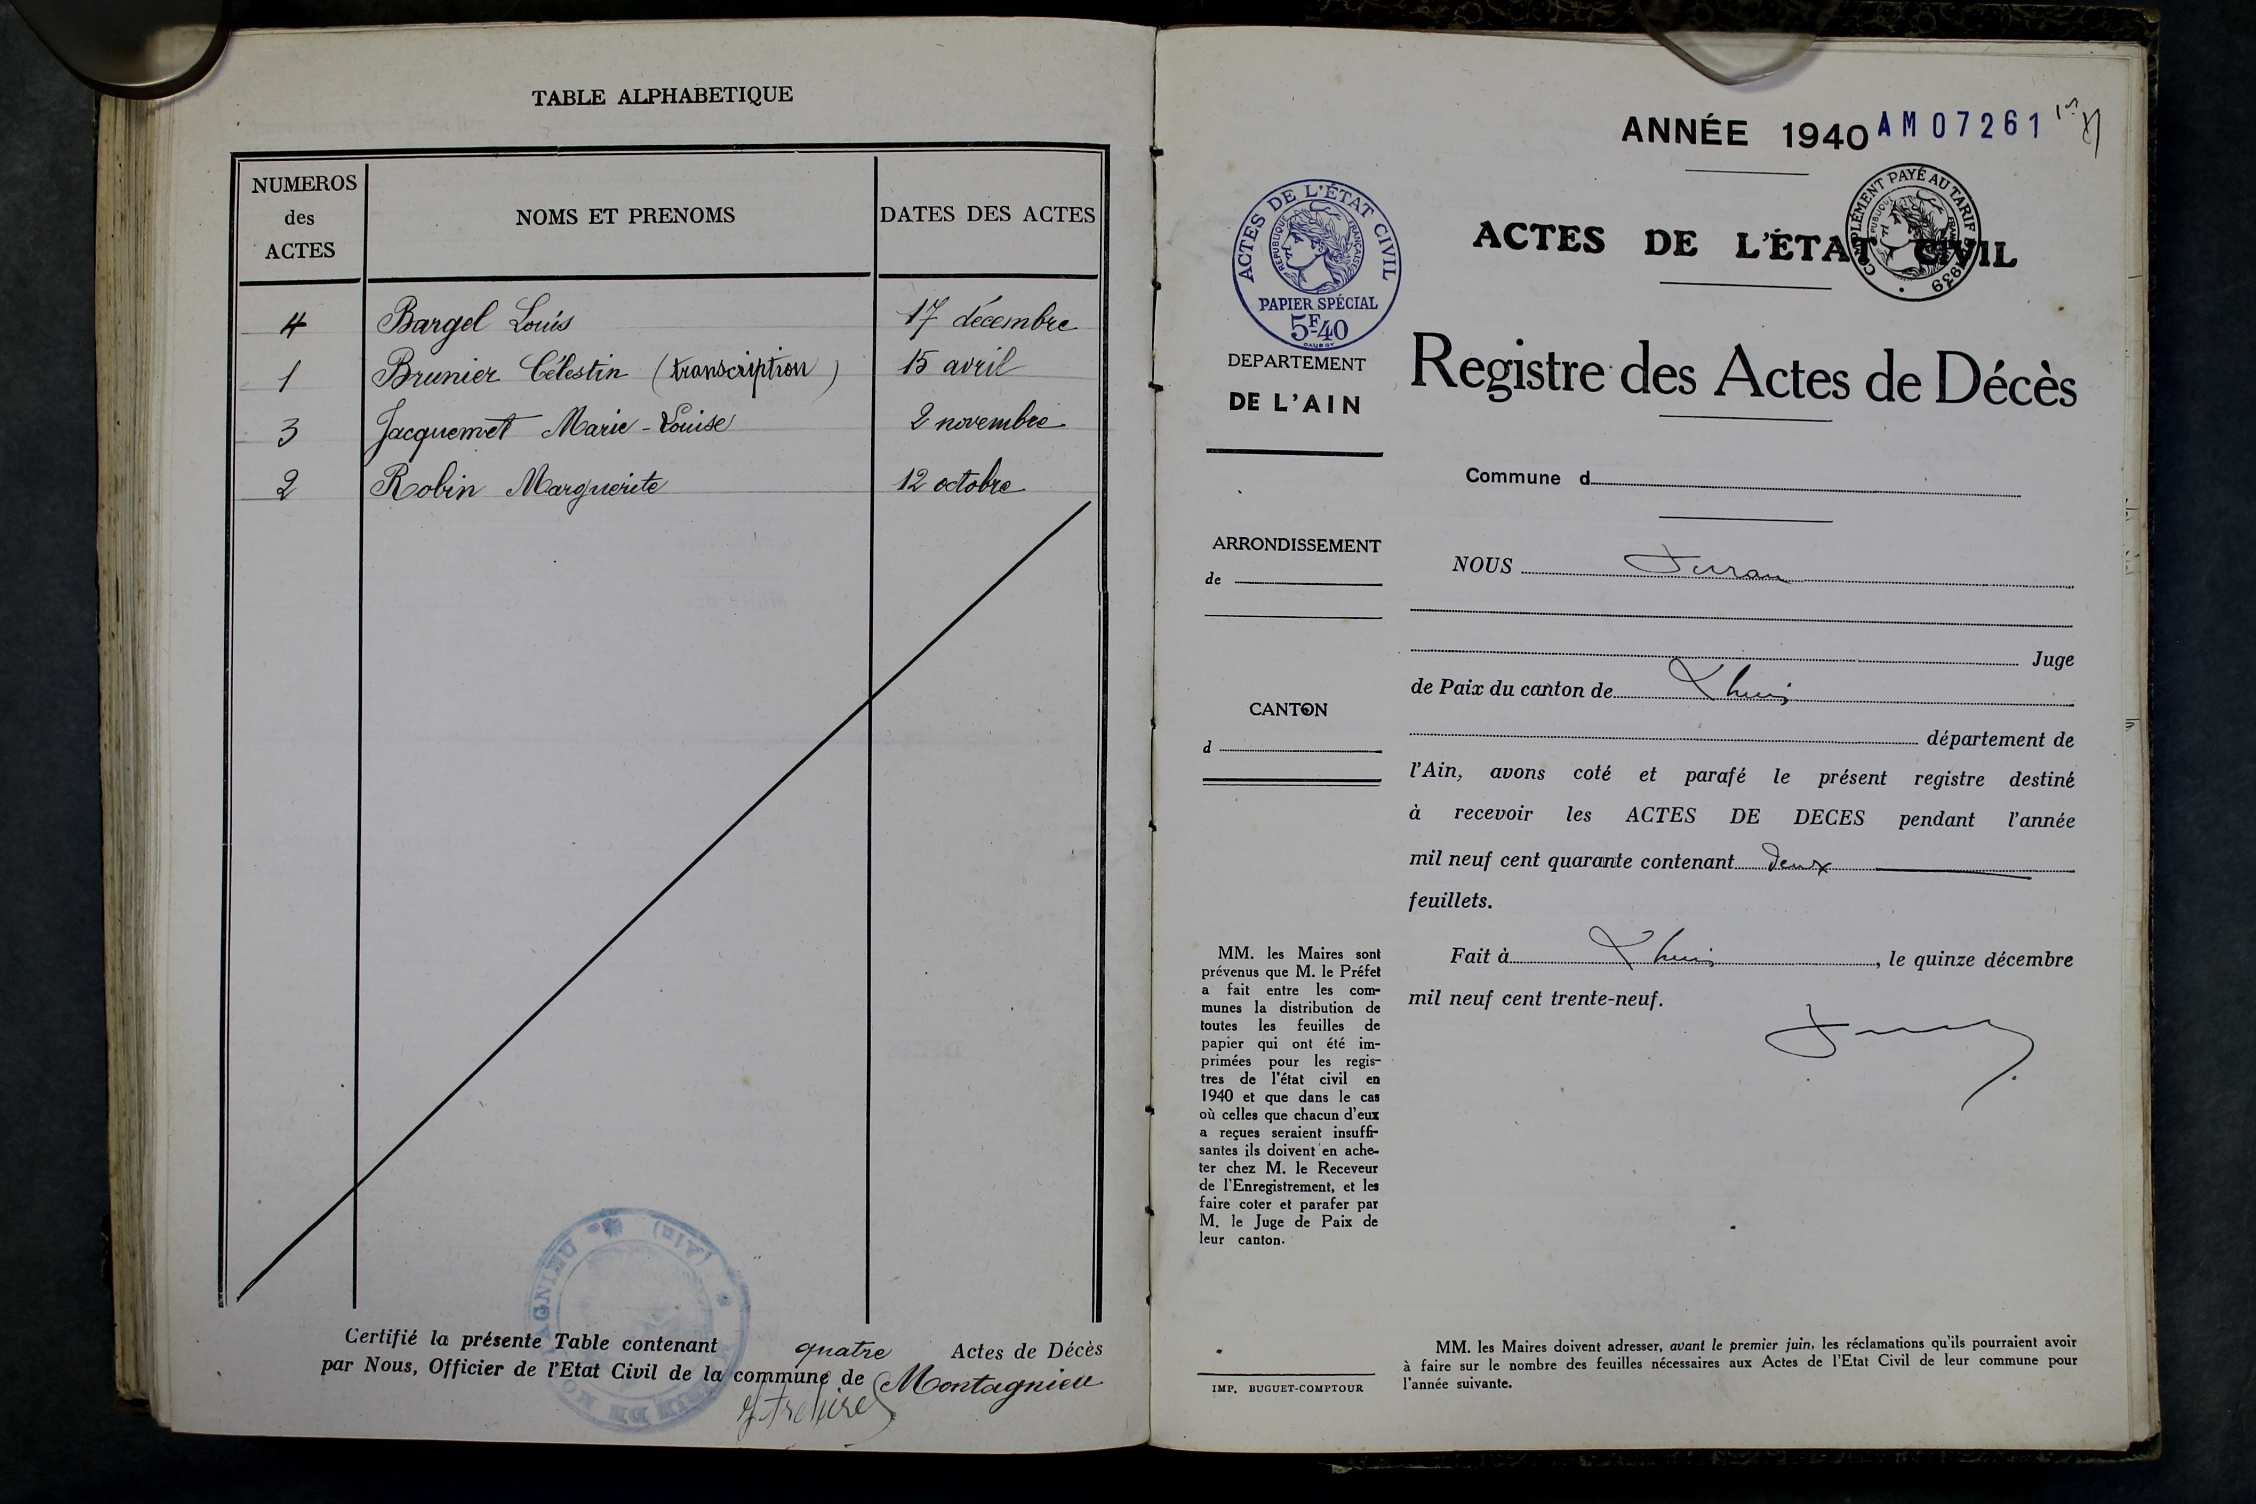 TABLE ALPHABETIQUE
NUMEROS des ACTES
NOMS ET PRENOMS
DATES DES ACTES
4 Bargel Louis 17 décembre
1 Brunier Célestin (transcription) 15 avril
3 Jacquemet Marie-Louise 2 novembre
2 Robin Marguerite 12 octobre
Certifié la présente Table contenant quatre Actes de Décès
par Nous, Officier de l'Etat Civil de la commune de Montagnieu
(AIN)
ANNÉE 1940 AM07261
ACTES DE L'ÉTAT CIVIL
RÉPUBLIQUE FRANÇAISE
PAPIER SPÉCIAL
5F-40
COMPLÉMENT PAYÉ AU TARIF 1939
ACTES DE L'ÉTAT CIVIL
DEPARTEMENT
DE L'AIN
Registre des Actes de Décès
Commune d
ARRONDISSEMENT
de
NOUS
Juge
de Paix du canton de Lhuis
CANTON
d
département de
l'Ain, avons coté et parafé le présent registre destiné
à recevoir les ACTES DE DECES pendant l'année
mil neuf cent quarante contenant deux
feuillets.
Fait à Lhuis, le quinze décembre
mil neuf cent trente-neuf.
MM. les Maires sont
prévenus que M. le Préfet
a fait entre les com-
munes la distribution de
toutes les feuilles de
papier qui ont été im-
primées pour les regis-
tres de l'état civil en
1940 et que dans le cas
où celles que chacun d'eux
a reçues seraient insuffi-
santes ils doivent en ache-
ter chez M. le Receveur
de l'Enregistrement, et les
faire coter et parafer par
M. le Juge de Paix de
leur canton.
IMP. BUGUET-COMPTOUR
MM. les Maires doivent adresser, avant le premier juin, les réclamations qu'ils pourraient avoir
à faire sur le nombre des feuilles nécessaires aux Actes de l'Etat Civil de leur commune pour
l'année suivante.